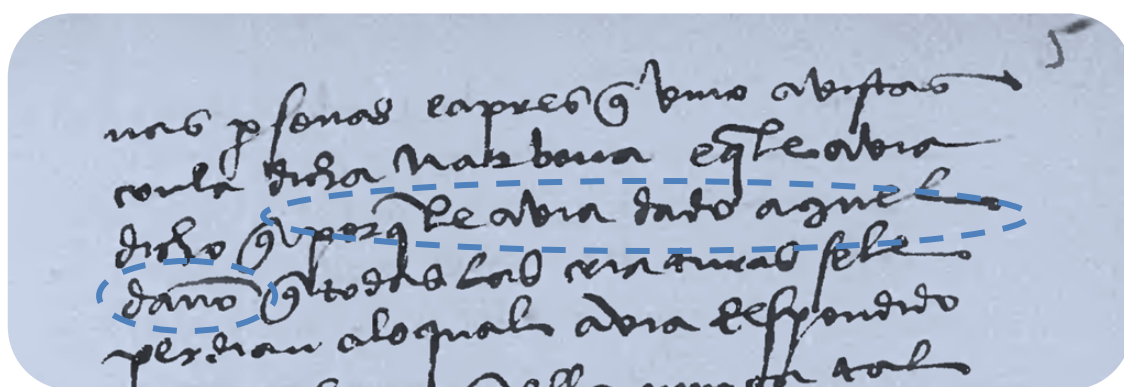 5
nas psonas e apres q vino a vistas
con la dicha narbona e q le avia
dicho q porq le avia dado aquel
dano q todas las criaturas se le
perdian a lo qual avia Respondido
tal